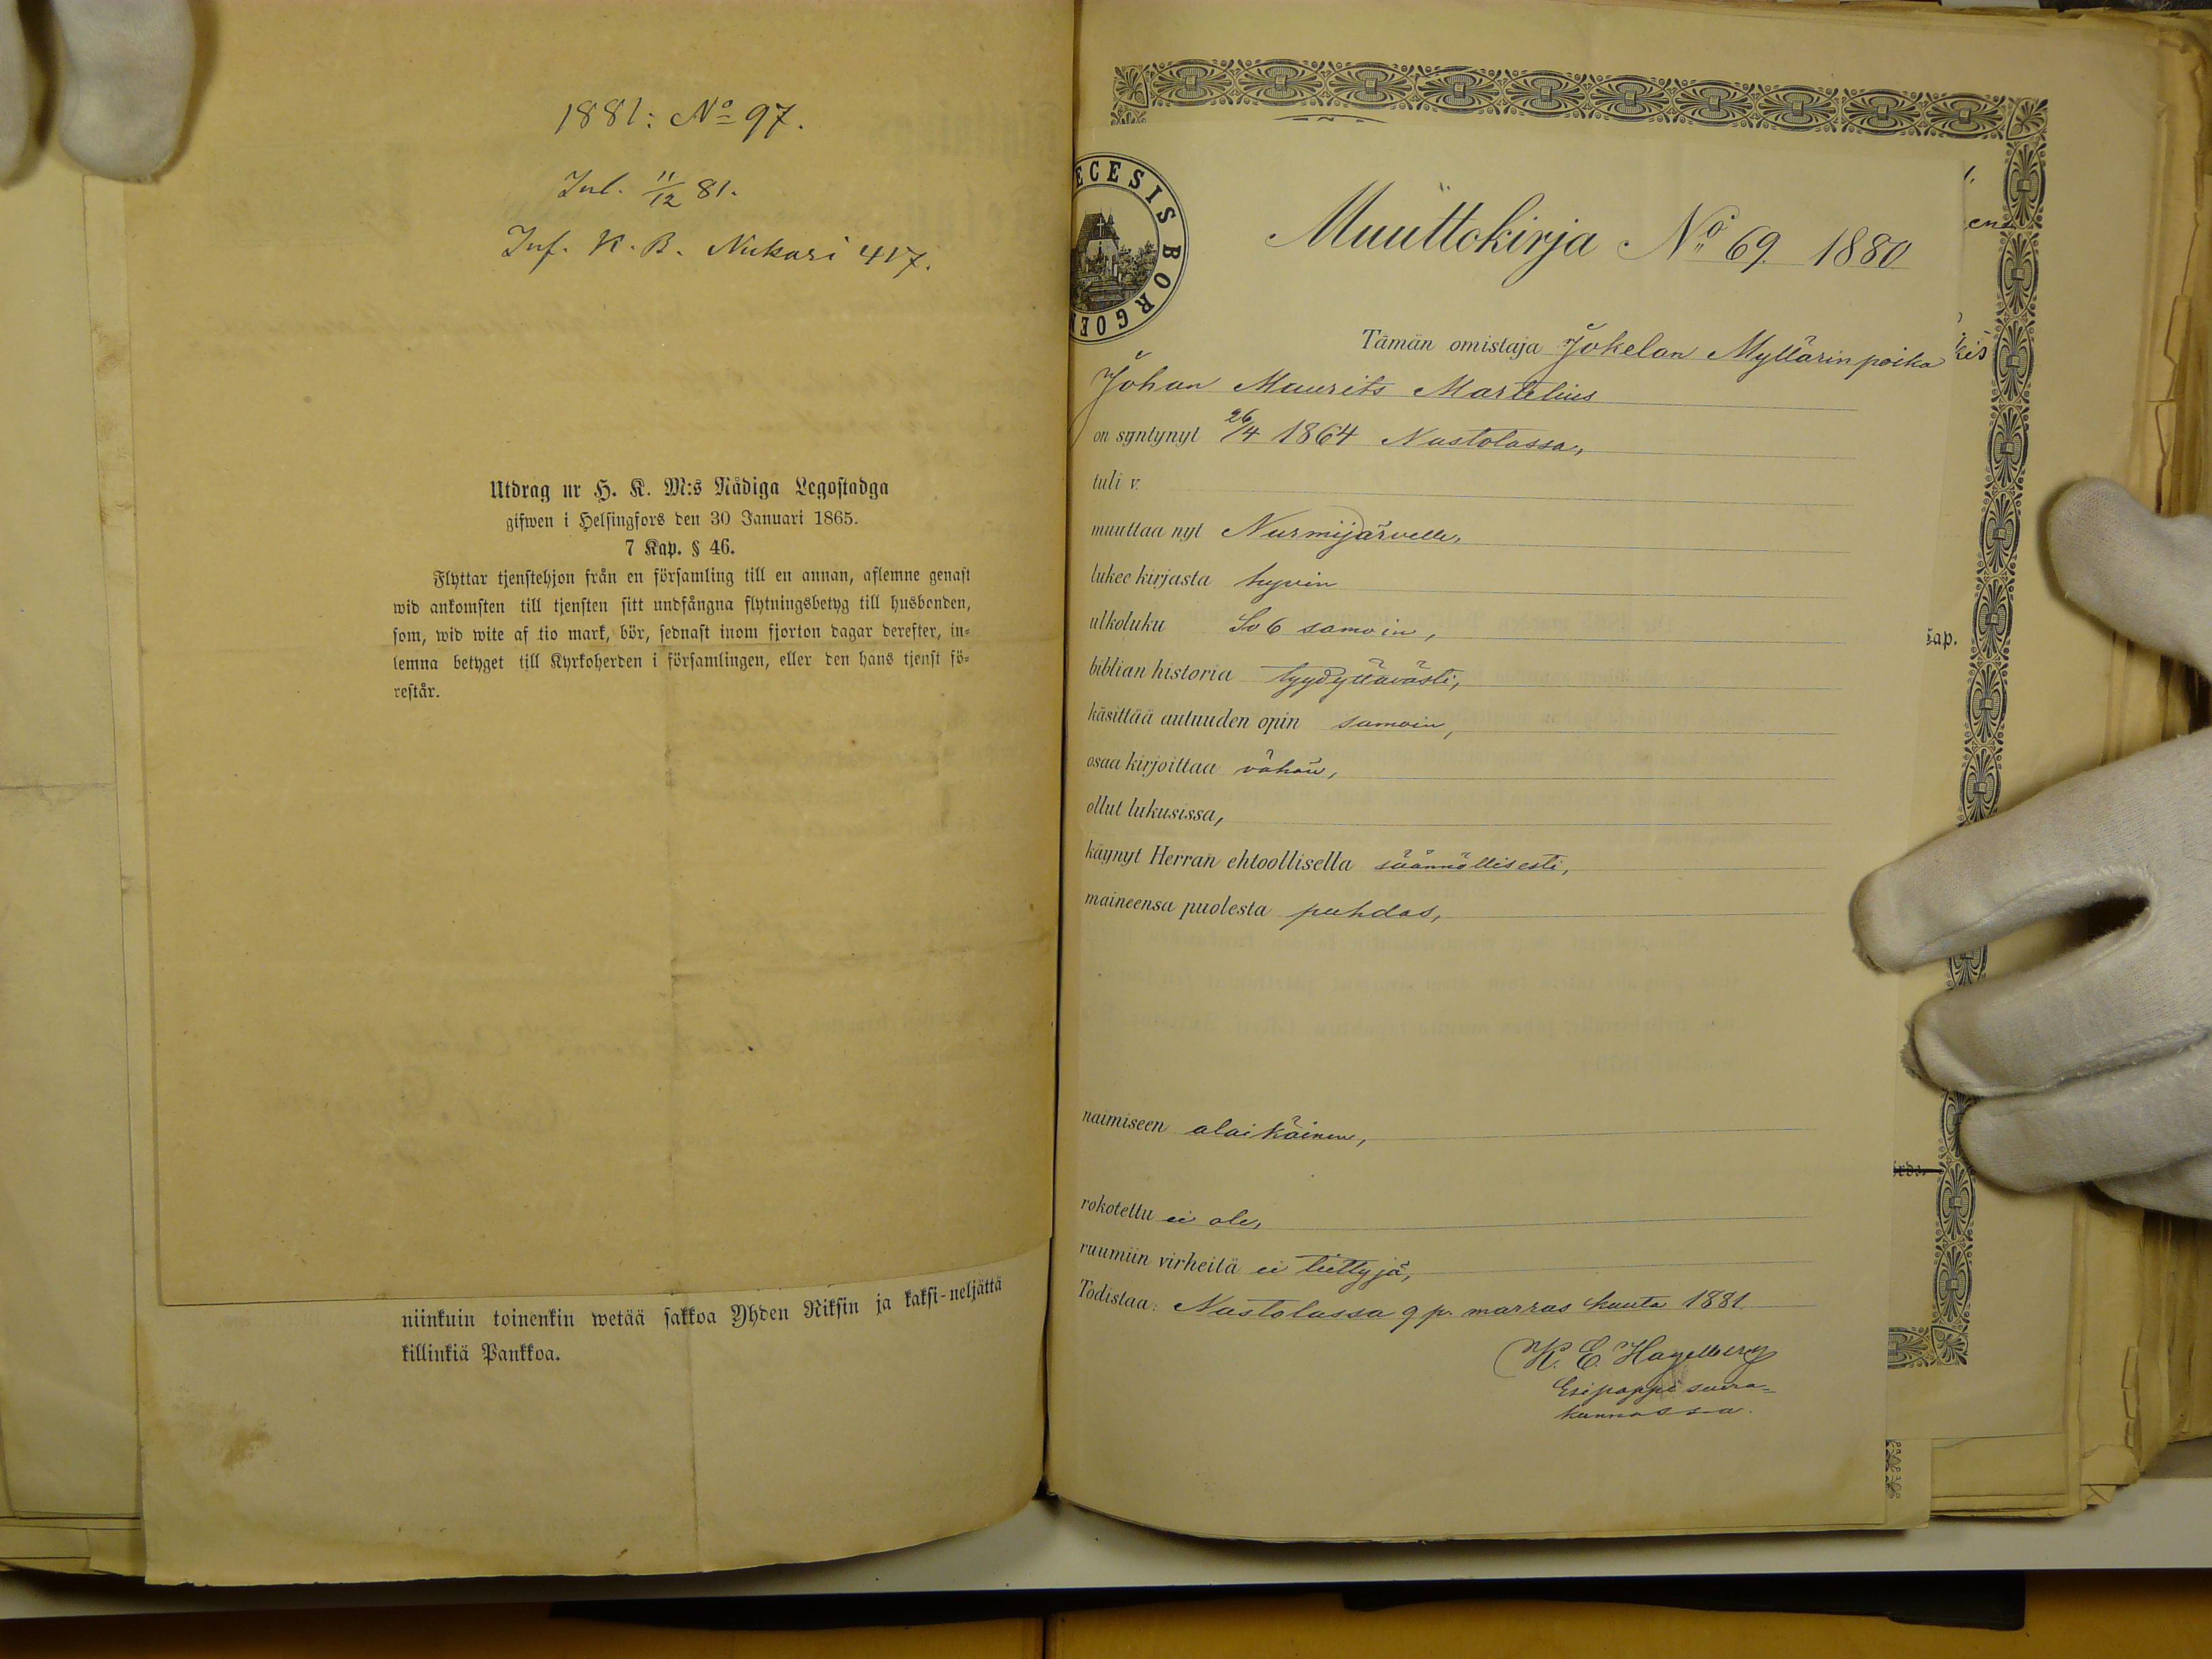 1881: No 97.
Inl. 11/12 81.
Inf. K. B. Nukari 417.
Utdrag ur H. K. M:s Nådiga Legostadga
gifwen i Helsingfors den 30 Januari 1865.
7 Kap. § 46.
Flyttar tjenstehjon från en församling till en annan, aflemne genast
wid ankomsten till tjensten sitt undfångna flytningsbetyg till husbonden,
som, wid wite af tio mark, bör, sednast inom fjorton dagar derefter, in-
lemna betyget till Kyrkoherden i församlingen, eller den hans tjenst fö-
restår.
niinkuin toinenkin wetää sakkoa Yhden Riksin ja kaksi-neljättä
killinkiä Pankkoa.
ECESIS BORGOEN
Muuttokirja No 69. 1880
Tämän omistaja Jokelan Myllärin poika
Johan Maurits Martelius
on syntynyt 26/4 1864 Nastolassa,
tuli v.
muuttaa nyt Nurmijärvelle,
lukee kirjasta hyvin
ulkoluku Sv 6 samoin,
biblian historia tyydyttävästi,
käsittää autuuden opin samoin,
osaa kirjoittaa vähän,
ollut lukusissa,
käynyt Herran ehtoollisella säännöllisesti,
maineensa puolesta puhdas,
naimiseen alaikäinen,
rokotettu ei ole,
ruumiin virheitä ei tiettyjä,
Todistaa: Nastolassa 9 p. marras kuuta 1881.
K. E. Hagelberg
Esipappi seura-
kunnassa.
kap.